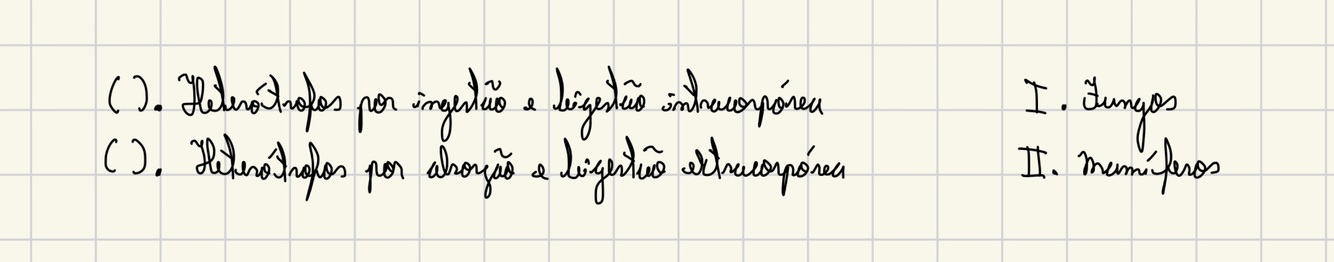 ( ). Heterótrofos por ingestão e digestão intracorpórea I. Fungos
( ). Heterótrofos por absorção e digestão extracorpórea II. Mamíferos